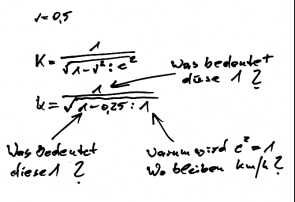 v=0,5
K = 1 / √1-v²:c²
Was bedeutet
diese 1 ?
k = 1 / √1-0,25:1
Was Bedeutet
diese 1 ?
Warum wird c²=1
Wo bleiben km/h ?